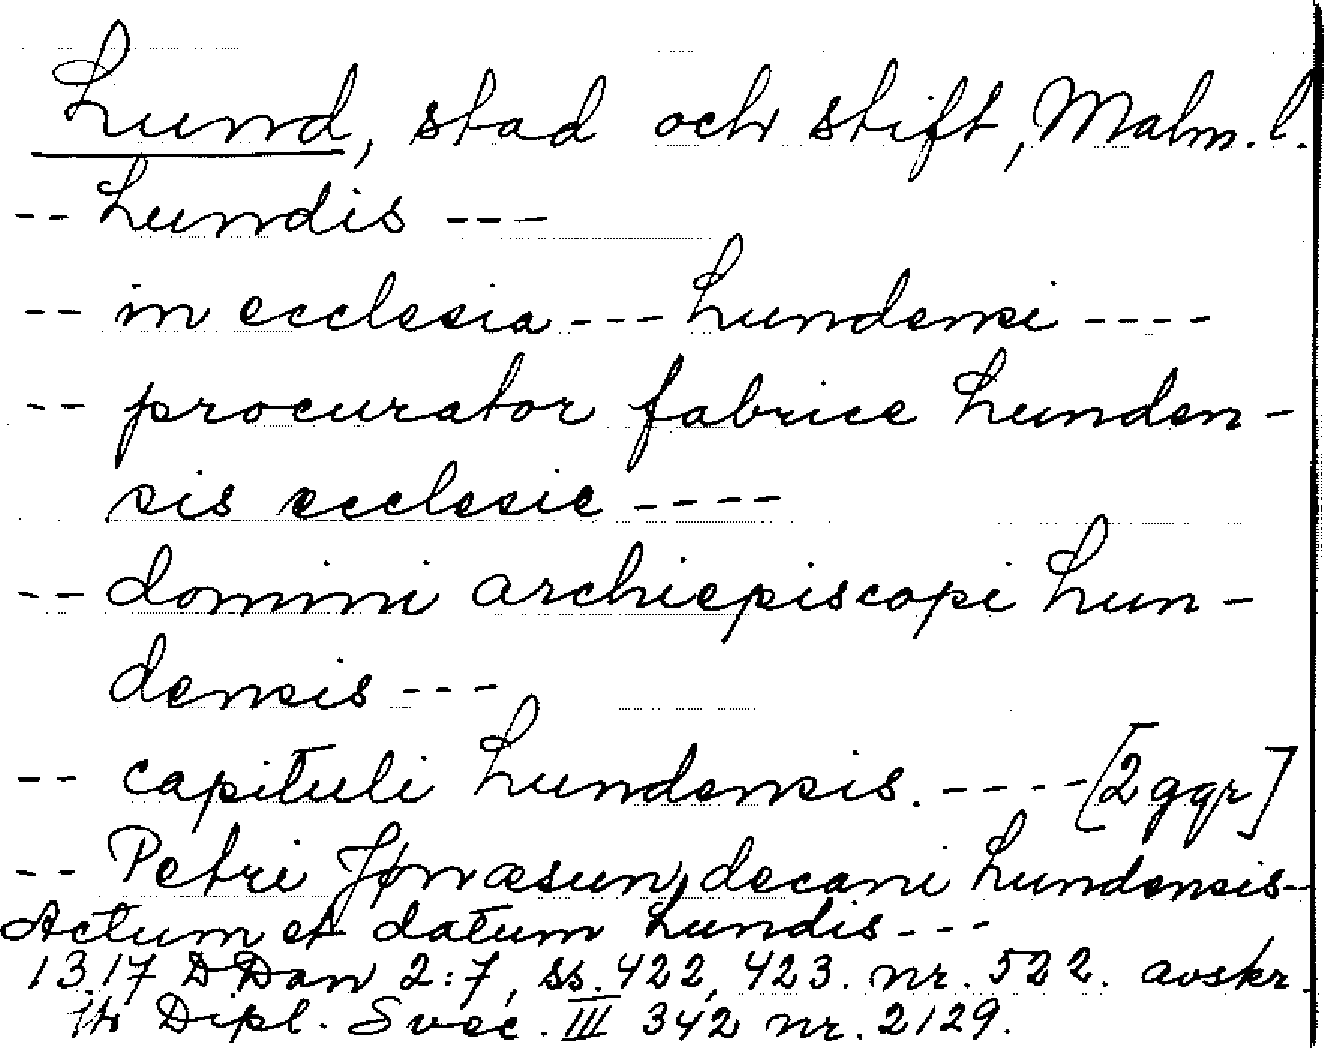 Lund, stad och stift, Malm. l.
-- Lundis ---
-- in ecclesia --- Lundensi ----
-- procurator fabrice Lunden-
sis ecclesie ----
-- domini archiepiscopi Lun-
densis ---
-- capituli Lundensis. ---- [2 ggr]
-- Petri Jønæsun, decani Lundensis--
Actum et datum Lundis ---
1317 DDan 2:7, ss. 422, 423. nr. 522. avskr.
Dipl. Svec. III 342 nr. 2129.